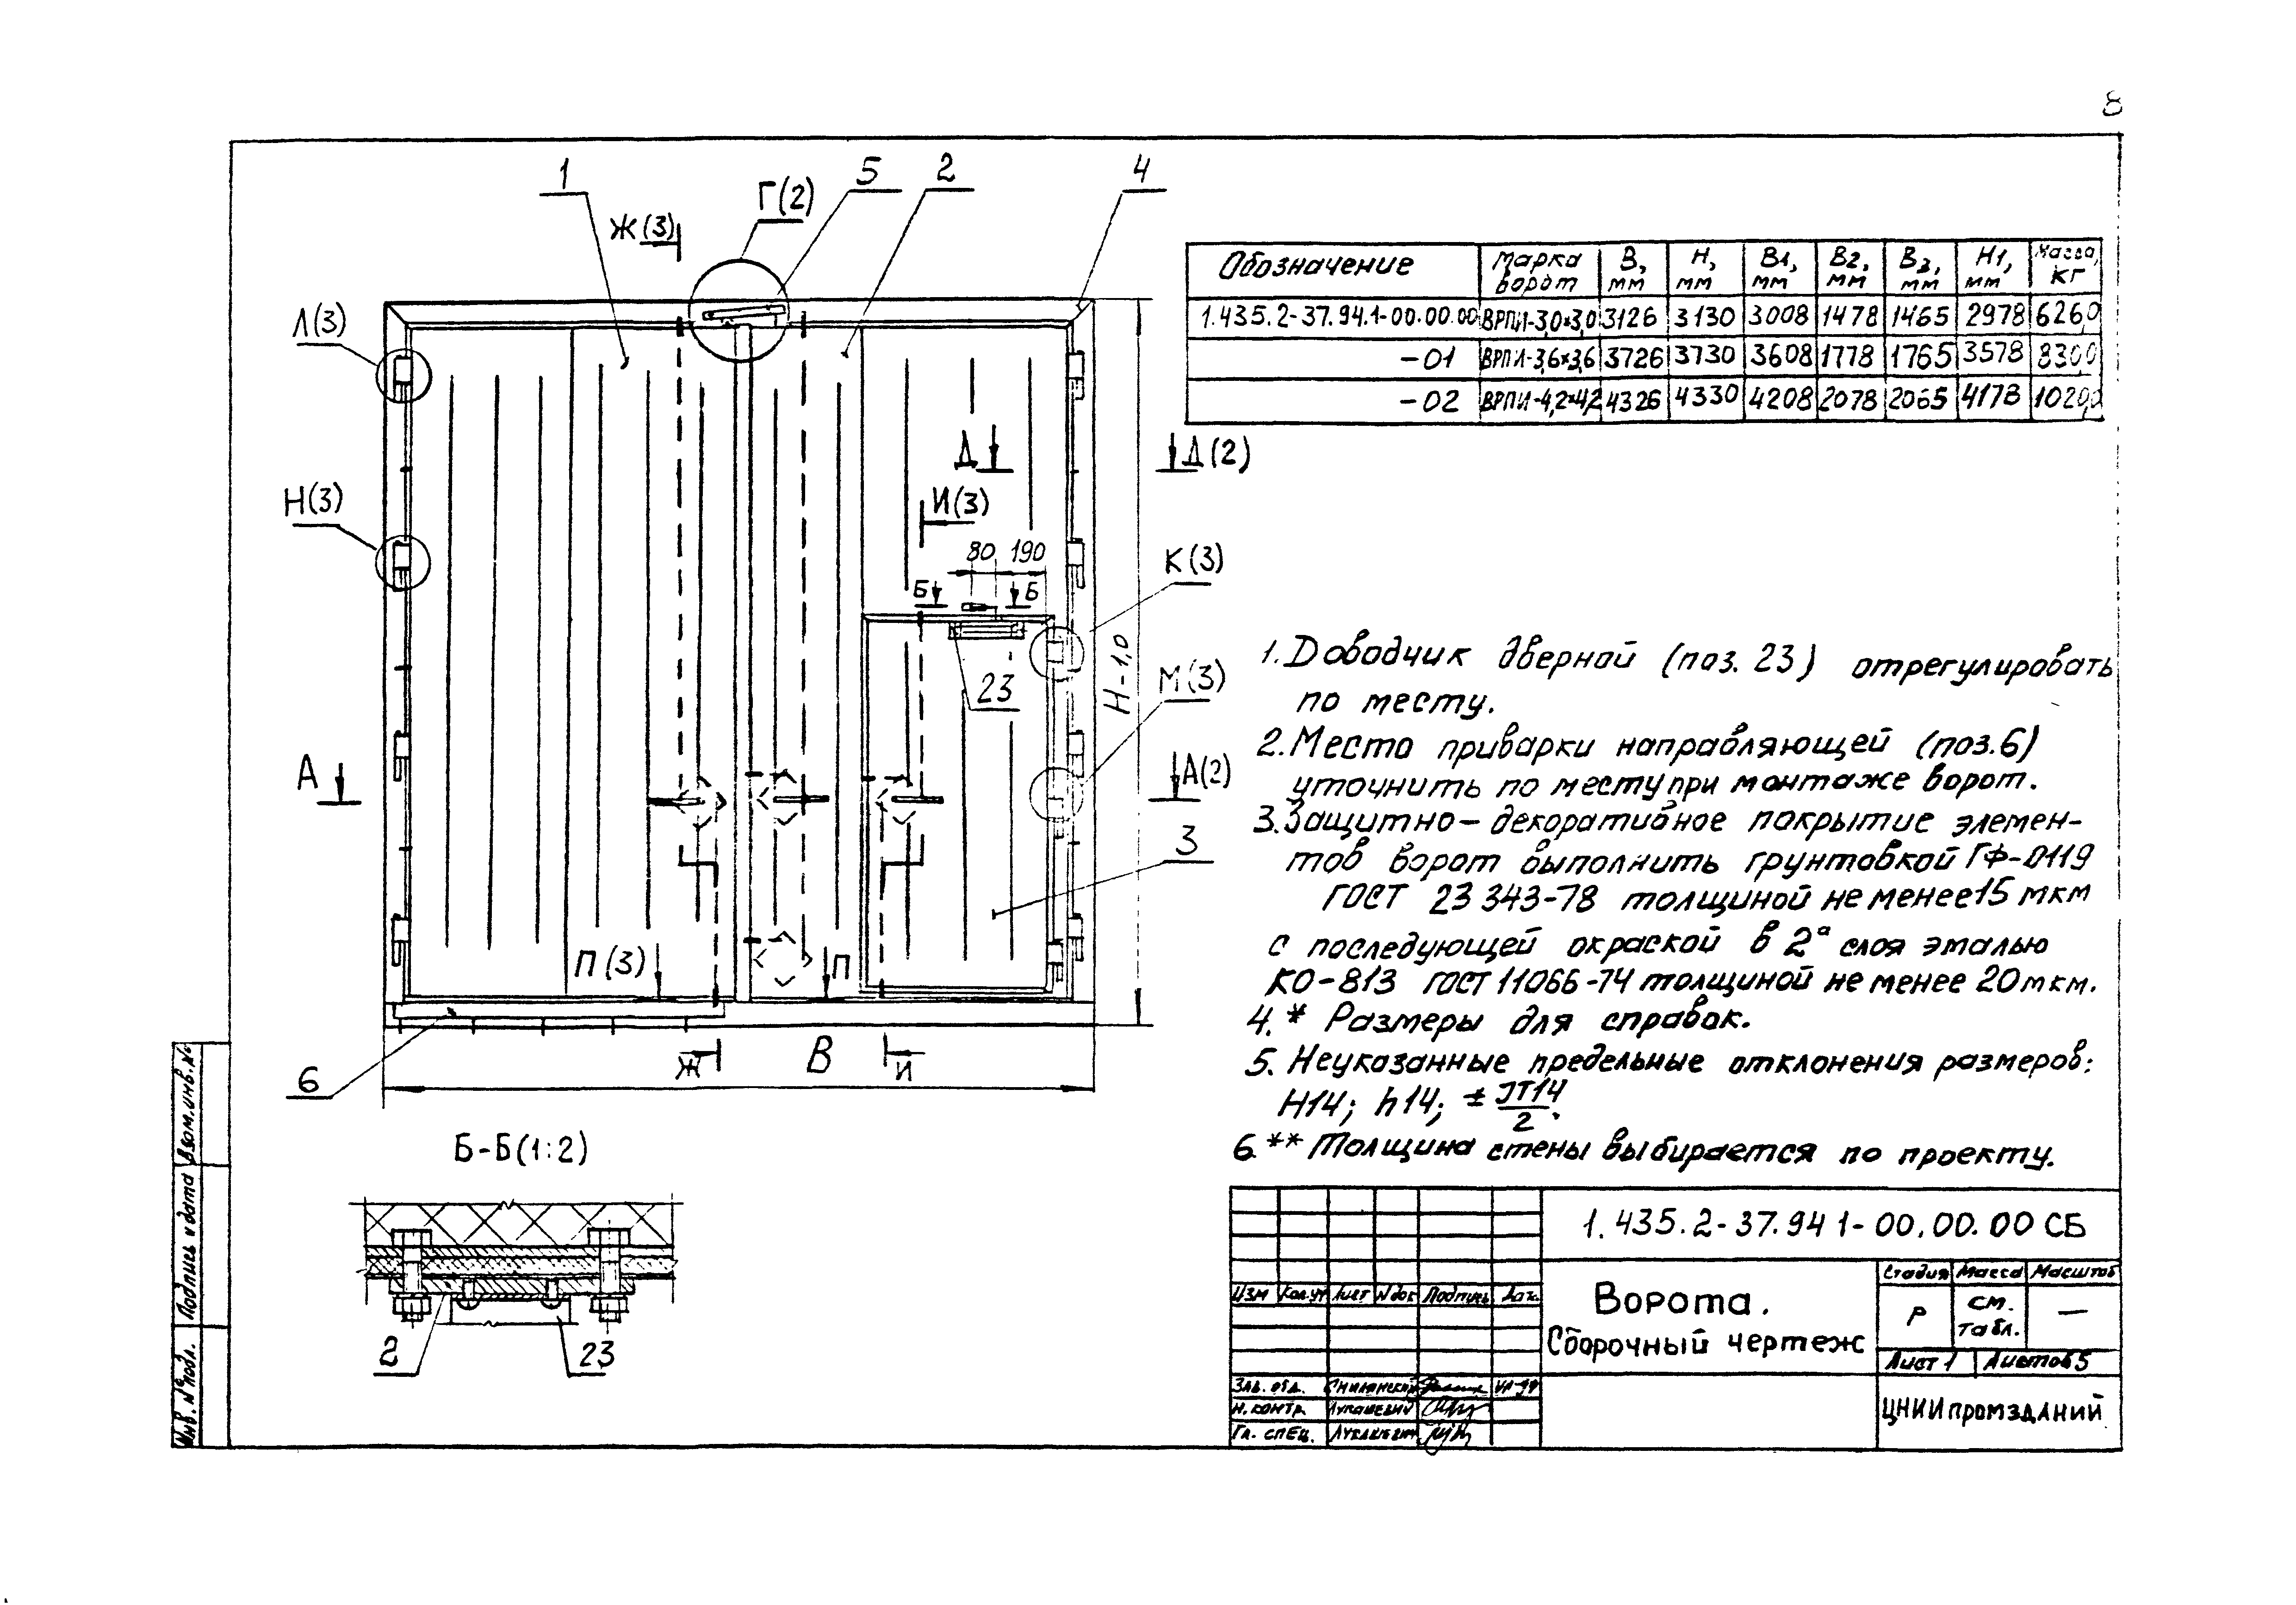 8
1
Г(2)
5
2
4
Ж(3)
Л(3)
Н(3)
Д
Д(2)
И(3)
80 190
К(3)
Б Б
23
Н-1,0
М(3)
А
А(2)
3
П(3)
П
6
Ж
В
И
Б-Б(1:2)
2
23
Обозначение Марка ворот В, мм Н, мм В1, мм В2, мм В3, мм Н1, мм Масса, кг
1.435.2-37.94.1-00.00.00 ВРПИ-3,0×3,0 3126 3130 3008 1478 1465 2978 626,0
-01 ВРПИ-3,6×3,6 3726 3730 3608 1778 1765 3578 830,0
-02 ВРПИ-4,2×4,2 4326 4330 4208 2078 2065 4178 1020,0
1. Доводчик дверной (поз. 23) отрегулировать
по месту.
2. Место приварки направляющей (поз.6)
уточнить по месту при монтаже ворот.
3. Защитно-декоративное покрытие элемен-
тов ворот выполнить грунтовкой ГФ-0119
ГОСТ 23343-78 толщиной не менее 15 мкм
с последующей окраской в 2а слоя эмалью
КО-813 ГОСТ 11066-74 толщиной не менее 20 мкм.
4. * Размеры для справок.
5. Неуказанные предельные отклонения размеров:
Н14; h14; ± IT14/2.
6. ** Толщина стены выбирается по проекту.
1.435.2-37.94 1-00.00.00 СБ
Ворота.
Сборочный чертеж
Стадия Масса Масштаб
Р см. табл. —
Лист 1 Листов 5
ЦНИИпромзданий
Изм Кол.уч Лист №док Подпись Дата
Зав. отд. Смилянский
Н. контр. Лукашевич
Гл. спец. Лукашевич
Взам.инв.№
Подпись и дата
Инв.№подл.